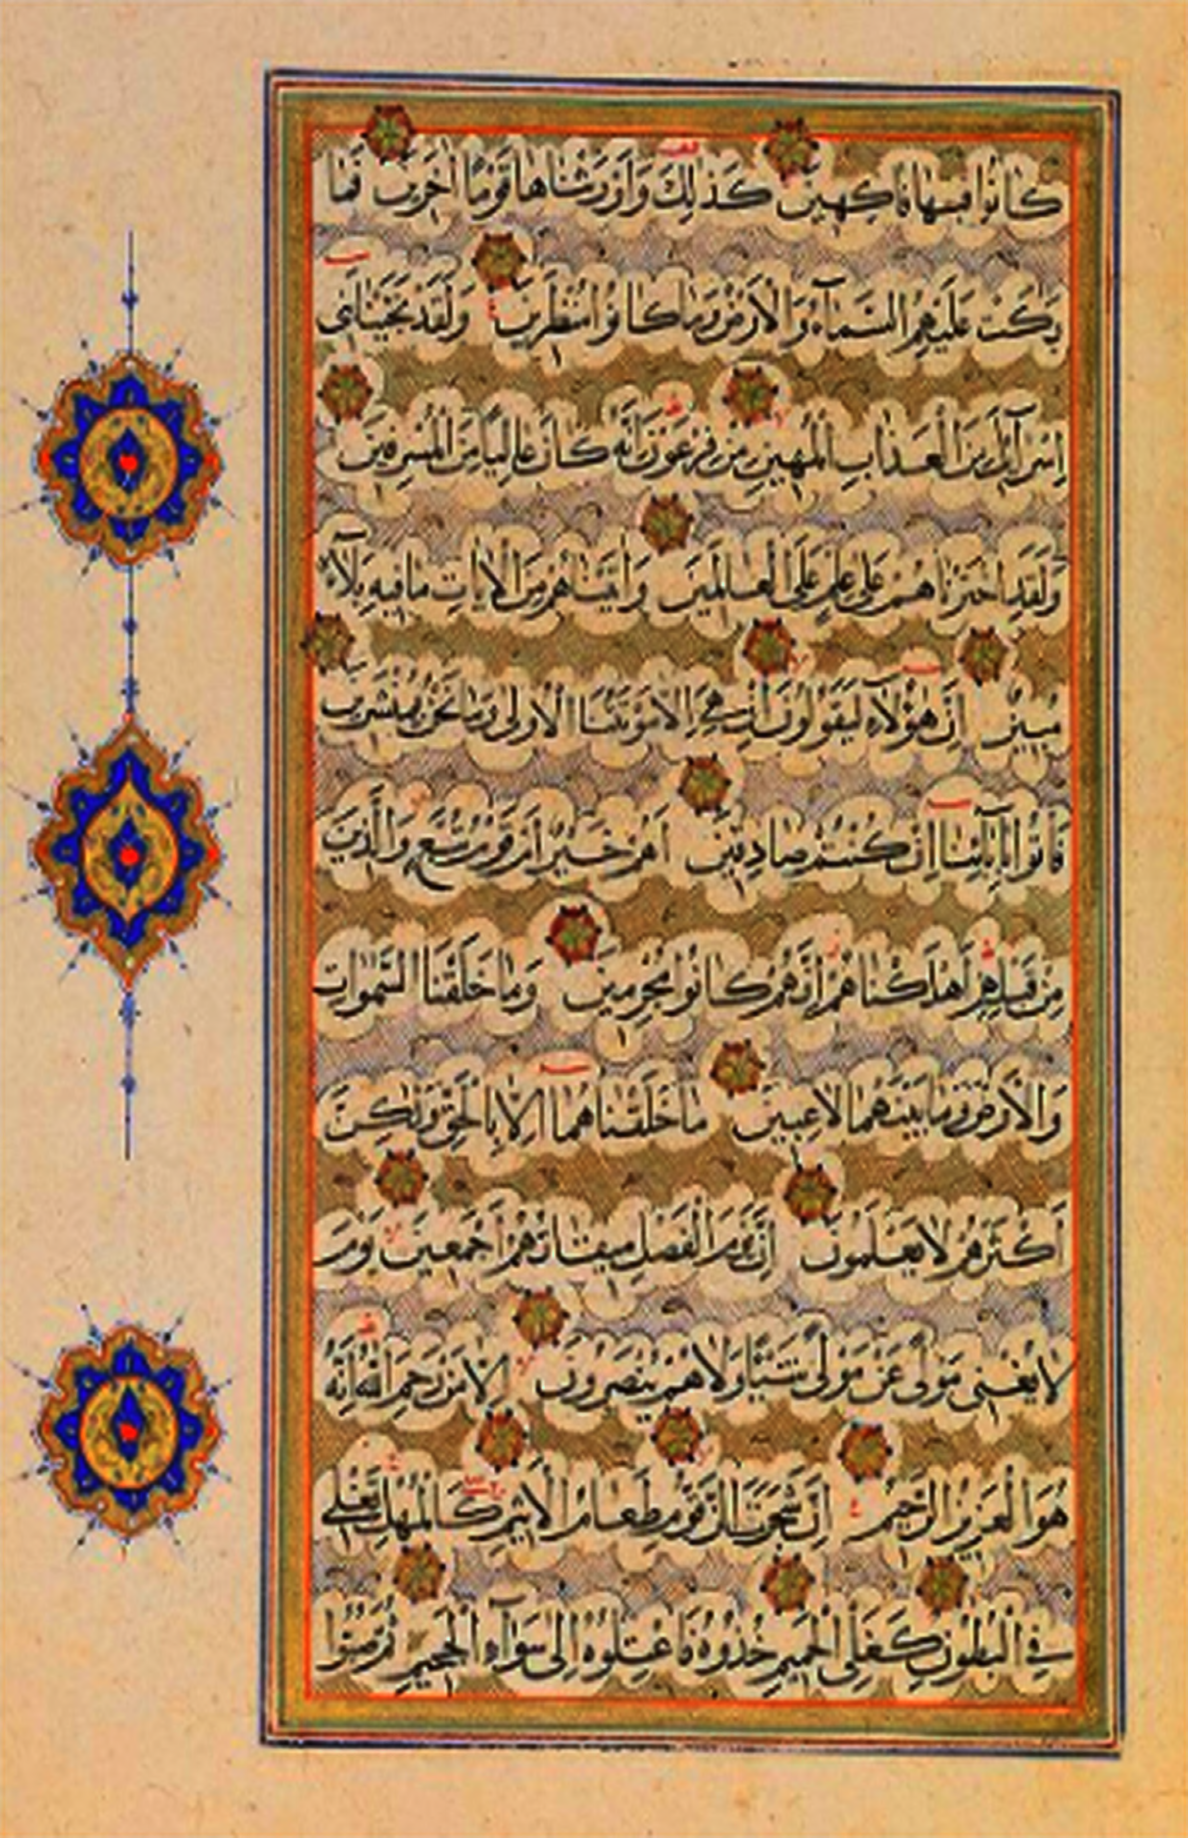 كَانُوا فِيهَا فَاكِهِينَ كَذَلِكَ وَأَوْرَثْنَاهَا قَوْمًا آخَرِينَ فَمَا
بَكَتْ عَلَيْهِمُ السَّمَاءُ وَالْأَرْضُ وَمَا كَانُوا مُنْظَرِينَ وَلَقَدْ نَجَّيْنَا بَنِي
إِسْرَآئِلَ مِنَ الْعَذَابِ الْمُهِينِ مِنْ فِرْعَوْنَ إِنَّهُ كَانَ عَالِيًا مِنَ الْمُسْرِفِينَ
وَلَقَدِ اخْتَرْنَاهُمْ عَلَى عِلْمٍ عَلَى الْعَالَمِينَ وَآتَيْنَاهُمْ مِنَ الْآيَاتِ مَا فِيهِ بَلَآءٌ
مُبِينٌ إِنَّ هَؤُلَآءِ لَيَقُولُونَ إِنْ هِيَ إِلَّا مَوْتَتُنَا الْأُولَى وَمَا نَحْنُ بِمُنْشَرِينَ
فَأْتُوا بِآبَائِنَا إِنْ كُنْتُمْ صَادِقِينَ أَهُمْ خَيْرٌ أَمْ قَوْمُ تُبَّعٍ وَالَّذِينَ
مِنْ قَبْلِهِمْ أَهْلَكْنَاهُمْ إِنَّهُمْ كَانُوا مُجْرِمِينَ وَمَا خَلَقْنَا السَّمَوَاتِ
وَالْأَرْضَ وَمَا بَيْنَهُمَا لَاعِبِينَ مَا خَلَقْنَاهُمَا إِلَّا بِالْحَقِّ وَلَكِنَّ
أَكْثَرَهُمْ لَا يَعْلَمُونَ إِنَّ يَوْمَ الْفَصْلِ مِيقَاتُهُمْ أَجْمَعِينَ يَوْمَ
لَا يُغْنِي مَوْلًى عَنْ مَوْلًى شَيْئًا وَلَا هُمْ يُنْصَرُونَ إِلَّا مَنْ رَحِمَ اللَّهُ إِنَّهُ
هُوَ الْعَزِيزُ الرَّحِيمُ إِنَّ شَجَرَتَ الزَّقُّومِ طَعَامُ الْأَثِيمِ كَالْمُهْلِ يَغْلِي
فِي الْبُطُونِ كَغَلْيِ الْحَمِيمِ خُذُوهُ فَاعْتِلُوهُ إِلَى سَوَآءِ الْجَحِيمِ ثُمَّ صُبُّوا